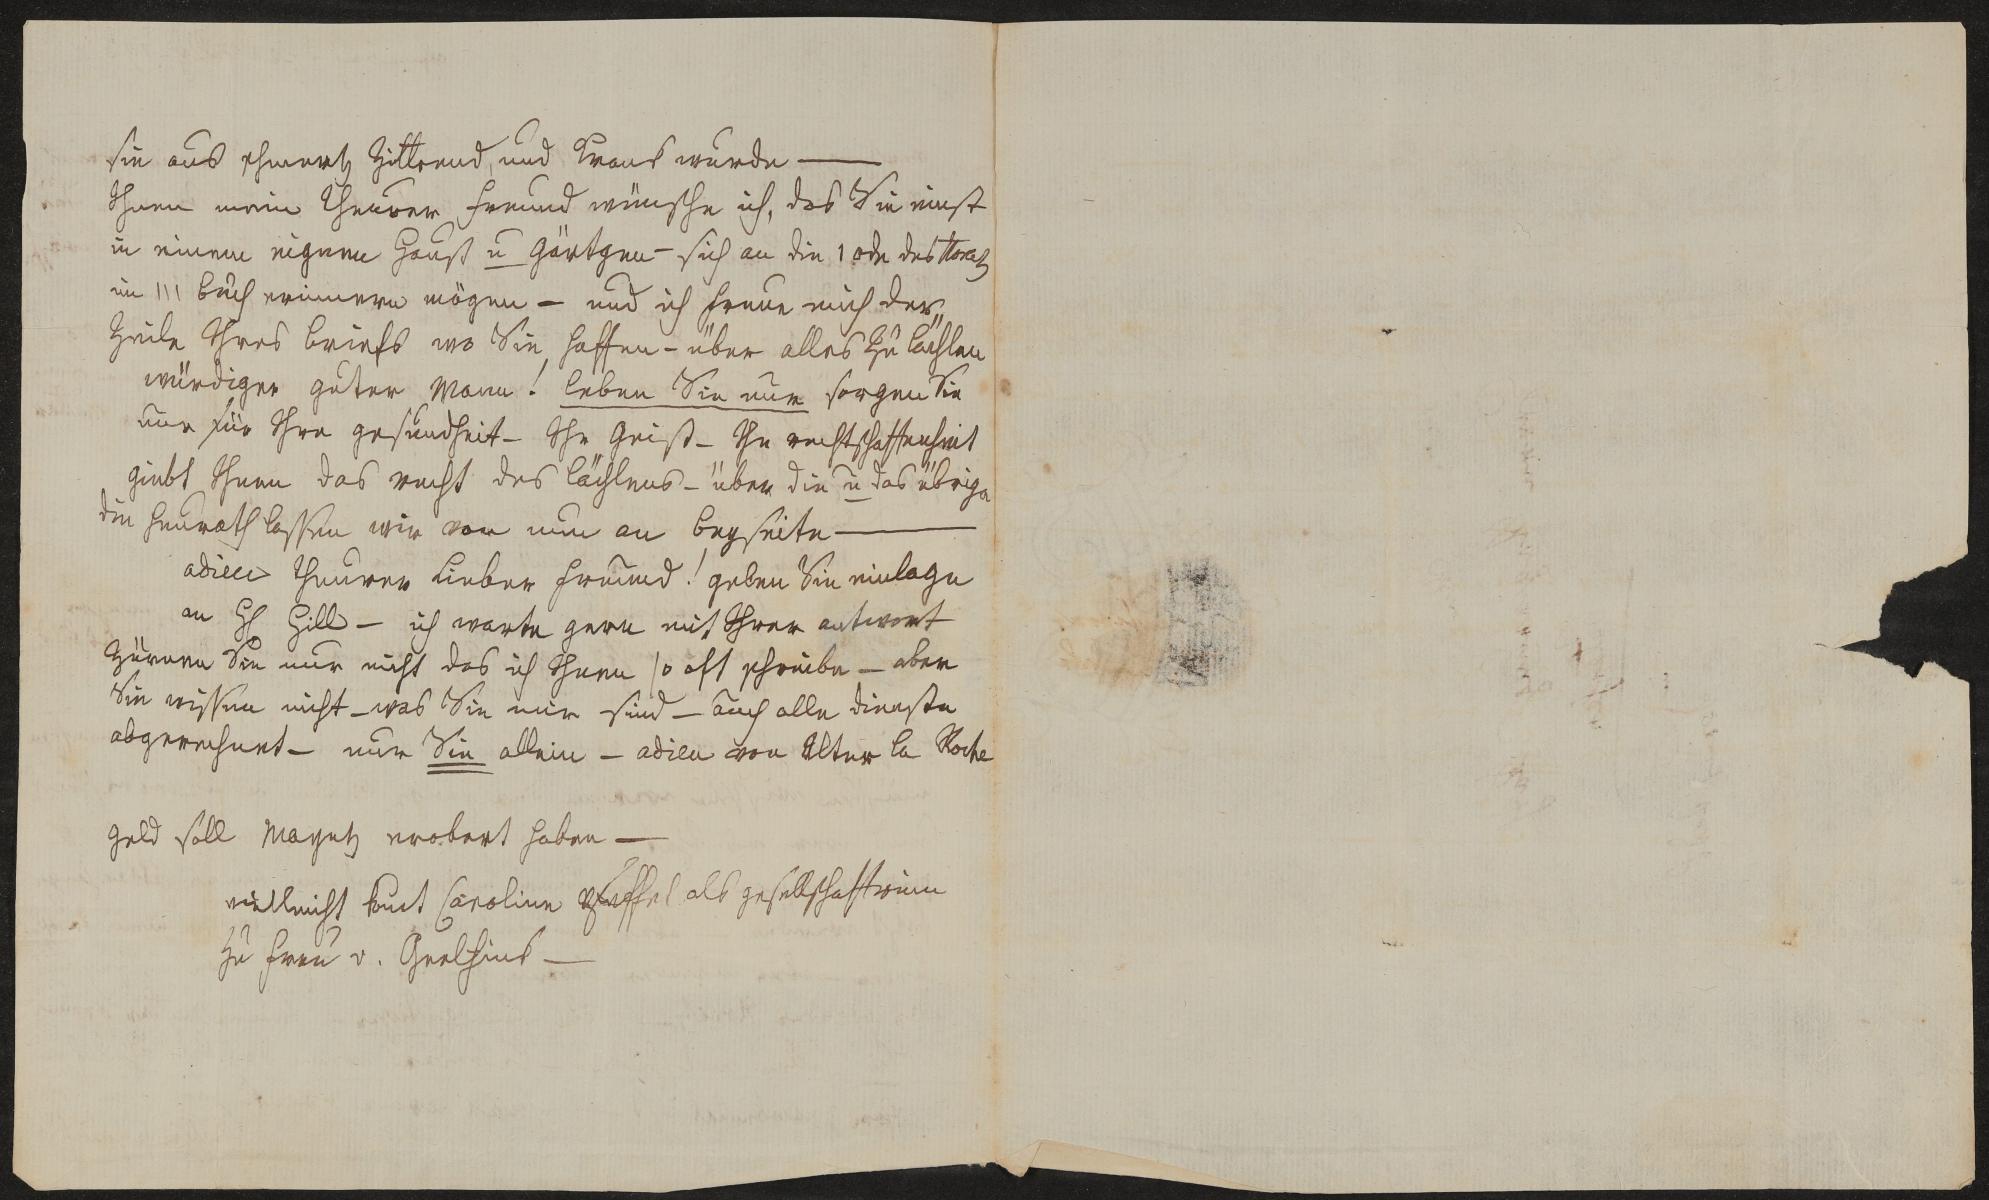 sie aus schmertz Zitterend und Kranck wurde —
Ihnen mein theurer freund wünsche ich, das Sie einst
in einem eignen Hauß u gärtgen — sich an die 1 ode des Horatz
im III buch erinnern mögen — und ich freue mich der
Zeile Ihres briefs wo Sie hoffen — über alles zu lächlen
würdiger guter Mann! leben Sie nur sorgen Sie
nur für Ihre gesundheit — Ihr Geist — Ihr rechtschaffenheit
giebt Ihnen das recht des lächlens — über die u das übrige
die heurath lassen wir von nun an beyseite —
adieu theurer Lieber freund! geben Sie einlage
an HH Hill — ich warte gern mit Ihrer antwort
Zürnen Sie nur nicht das ich Ihnen so oft schreibe — aber
Sie wissen nicht — was Sie mir sind — auch alle dienste
abgerechnet — nur Sie allein — adieu von Alter La Roche
geld soll Mayntz erobert haben —
vielleicht komt Caroline als gesellschafterinn
zu frau v.